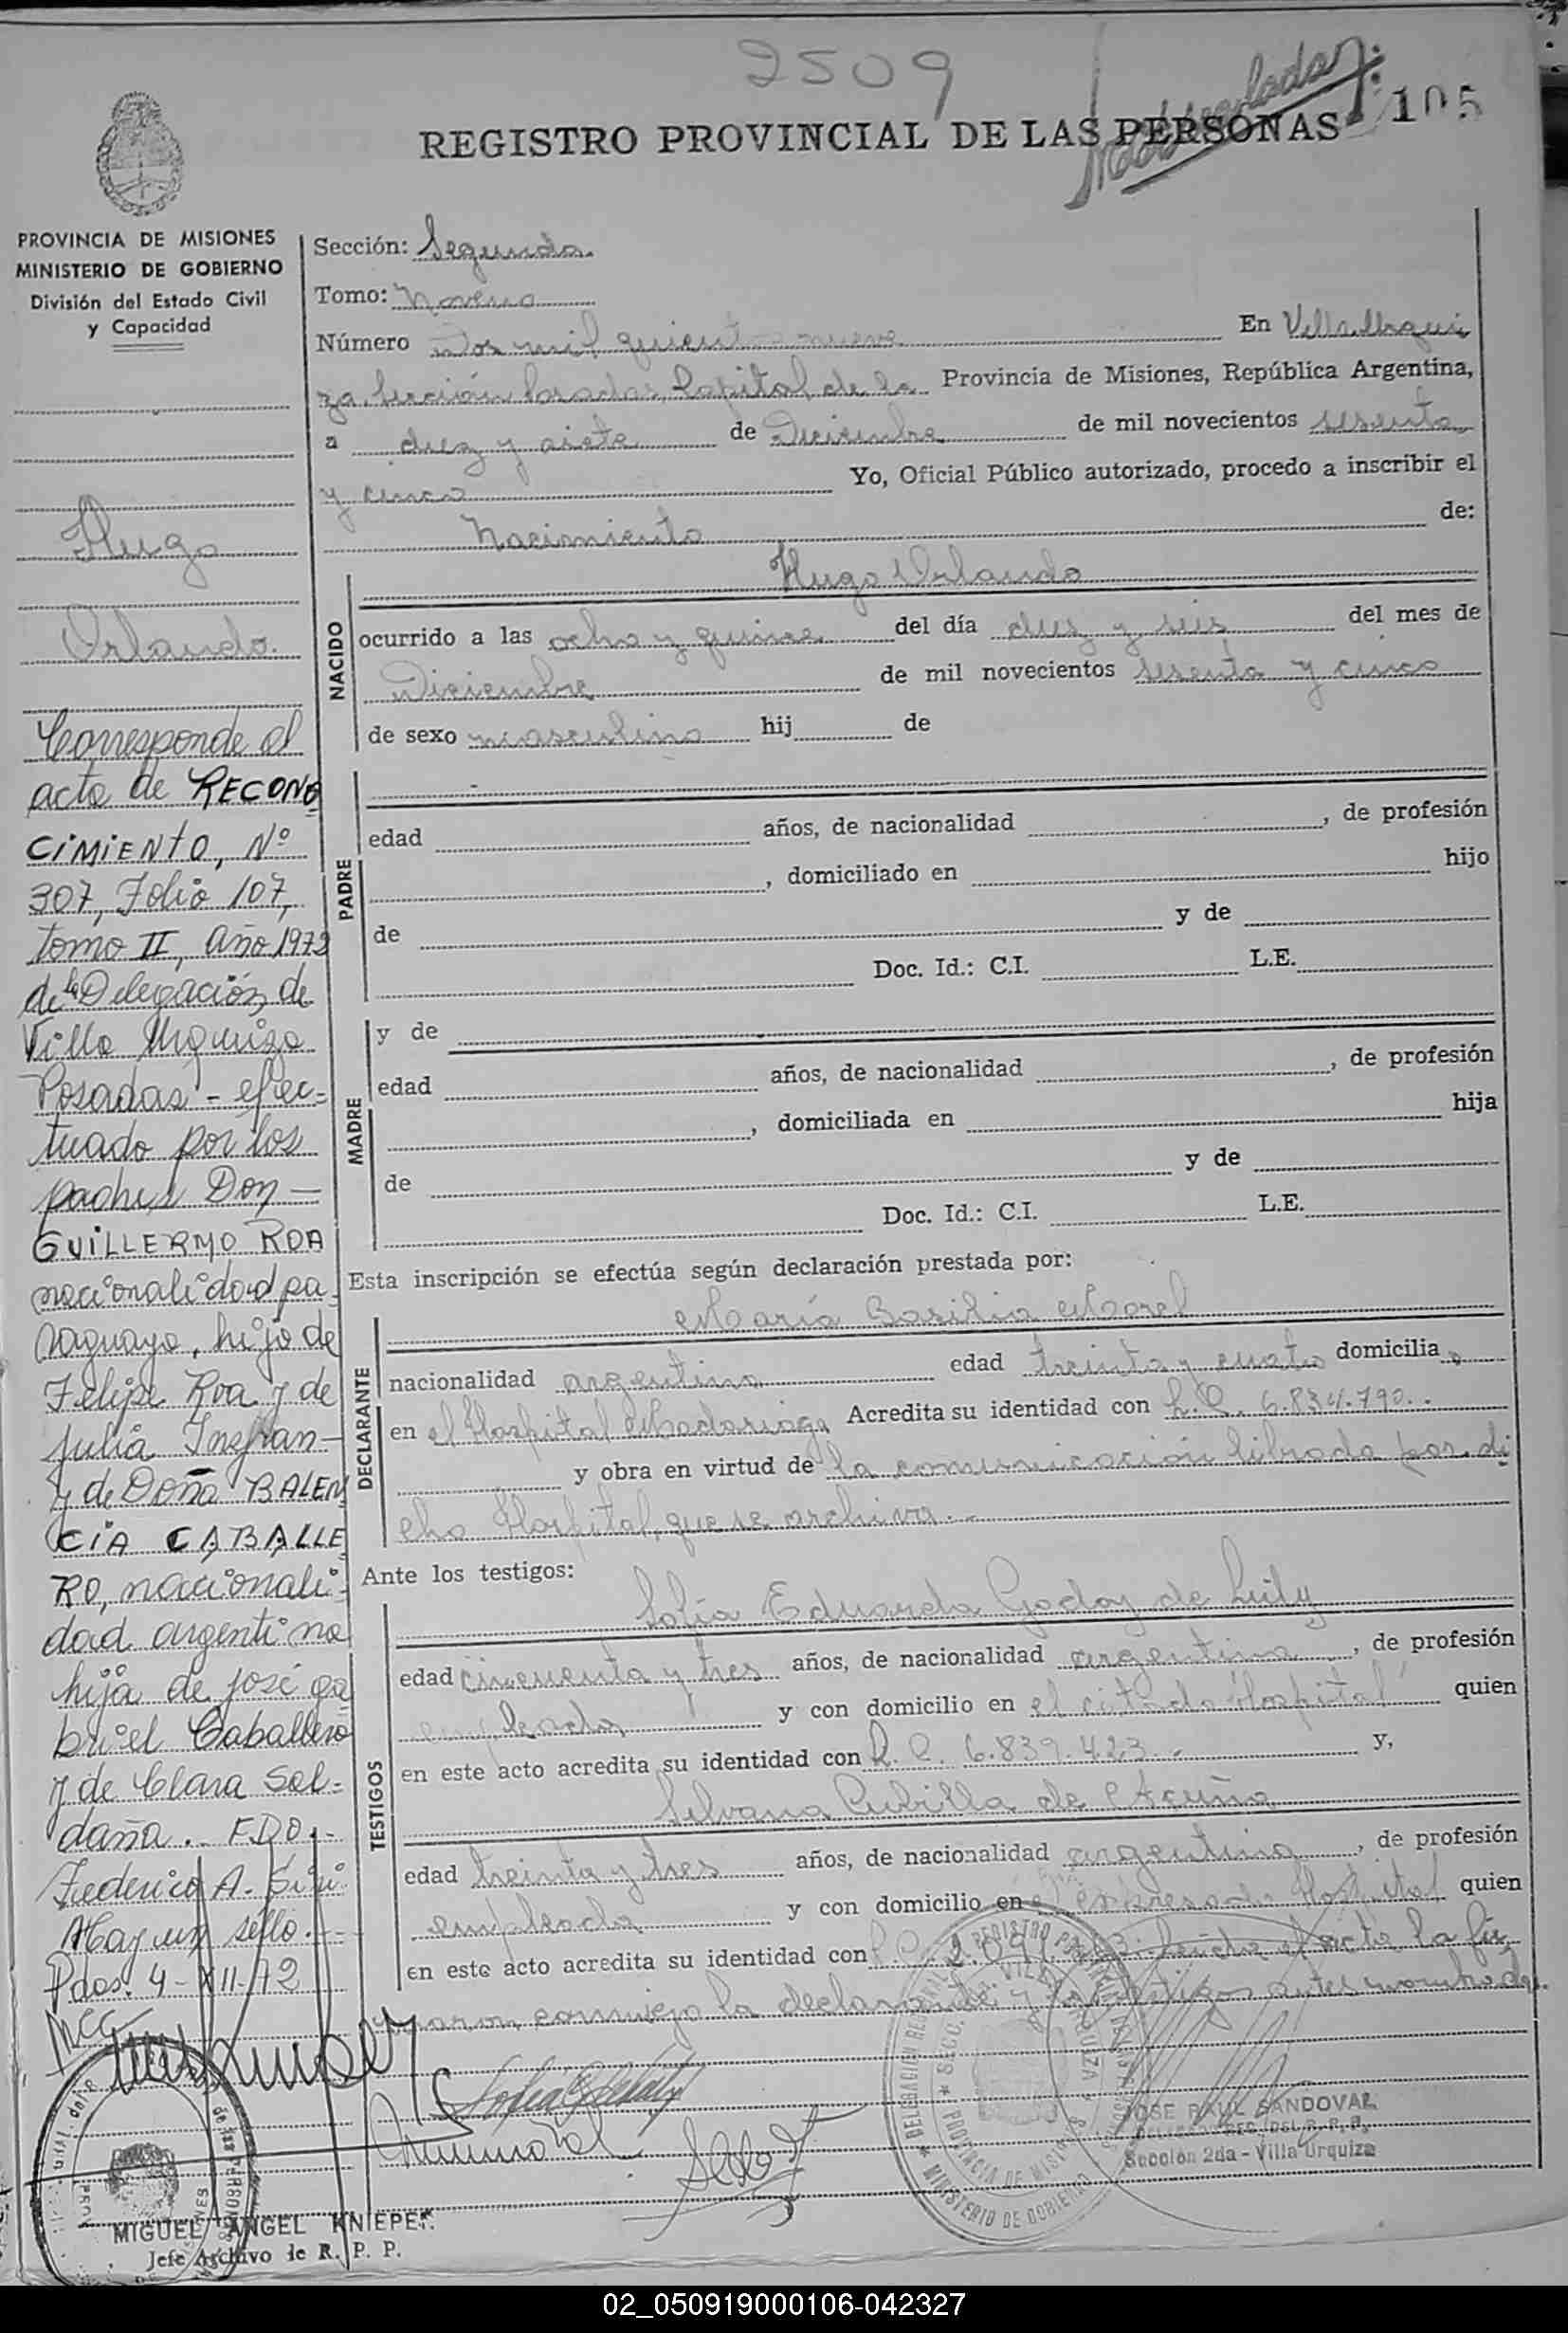 2509
105
REGISTRO PROVINCIAL DE LAS PERSONAS
PROVINCIA DE MISIONES
MINISTERIO DE GOBIERNO
División del Estado Civil
y Capacidad
Hugo
Orlando.
Corresponde al
acta de RECONO
CIMIENTO, Nº
307, Folio 107,
tomo II, año 1972
de la Delegación de
Villa Urquiza
Posadas - efec=
tuado por los
padres Don —
GUILLERMO ROA
nacionalidad pa-
raguaya, hijo de
Felipe Roa y de
Julia Insfran-
y de Doña BALEN
CIA CABALLE
RO, nacionali-
dad argentina
hija de José ga
briel Caballero
y de Clara Sal=
daña. FDO.-
Federico A.
Hay un sello.-
Pdas. 4-XII-72
MCG
MIGUEL ANGEL KNIEPER.
Jefe Archivo de R. P. P.
Sección: Segunda.
Tomo: Noveno
Número Dos mil quientos nueve En Villa Urqui
za, Sección Posadas, Capital de la Provincia de Misiones, República Argentina,
a diez y siete de Diciembre de mil novecientos sesenta
y cinco Yo, Oficial Público autorizado, procedo a inscribir el
Nacimiento de:
NACIDO
Hugo Orlando
ocurrido a las ocho y quince del día diez y seis del mes de
Diciembre de mil novecientos sesenta y cinco
de sexo masculino hij de
PADRE
edad años, de nacionalidad , de profesión
, domiciliado en hijo
de y de
Doc. Id.: C.I. L.E.
MADRE
y de
edad años, de nacionalidad , de profesión
, domiciliada en hija
de y de
Doc. Id.: C.I. L.E.
Esta inscripción se efectúa según declaración prestada por:
DECLARANTE
María Basilia Morel
nacionalidad argentina edad treinta y cuatro domicilia
en el Hospital Madariaga Acredita su identidad con L.C. 6.834.790..
y obra en virtud de la comunicación librada por di
cho Hospital, que se archiva.-
Ante los testigos:
TESTIGOS
Sofía Eduarda Godoy de
edad cincuenta y tres años, de nacionalidad argentina , de profesión
empleada y con domicilio en el citado Hospital quien
en este acto acredita su identidad con L.C. 6.839.423.- y,
Silvana Cubilla de Acuña
edad treinta y tres años, de nacionalidad argentina , de profesión
empleada y con domicilio en el expresado Hospital quien
en este acto acredita su identidad con el acta la fir
maron conmigo la declarante y testigos antes nombrados.
JOSE RAUL SANDOVAL
DELEGADO REG. DEL R. P. P.
Sección 2da - Villa Urquiza
MINISTERIO DE GOBIERNO
PROVINCIA DE MISIONES
02_050919000106-042327